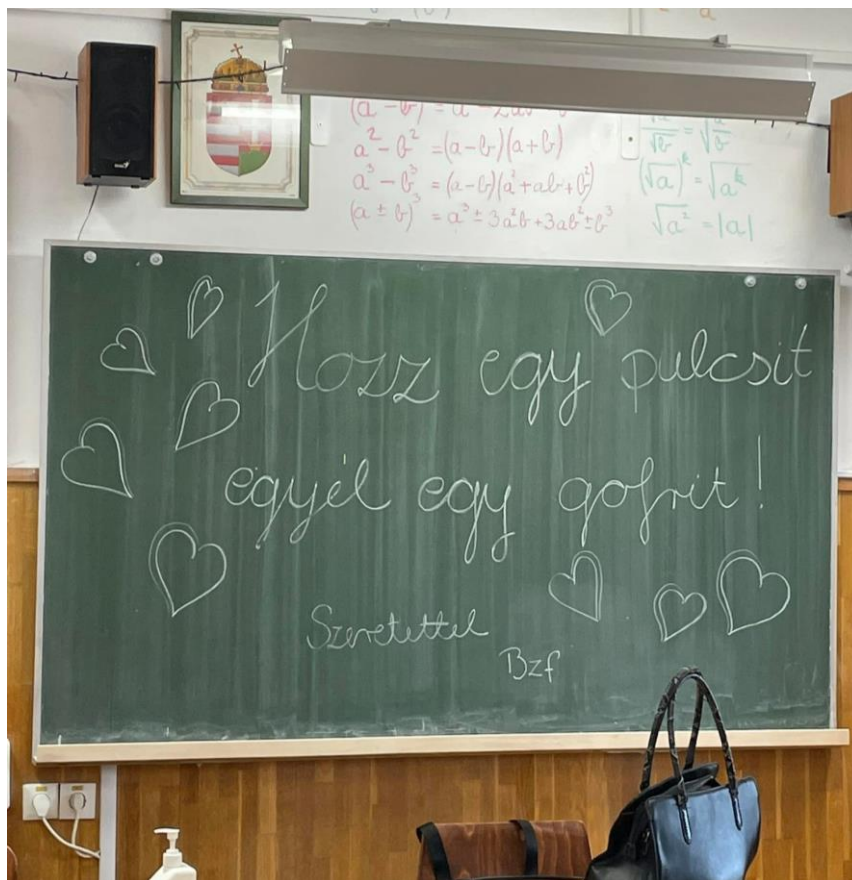 (a - b)² = a² - 2ab + b²
a² - b² = (a-b)(a+b)
a³ - b³ = (a-b)(a²+ab+b²)
(a ± b)³ = a³ ± 3a²b + 3ab² ± b³
√a/√b = √a/b
(√a)ᵏ = √aᵏ
√a² = |a|
Hozz egy pulcsit
egyél egy gofrit!
Szeretettel
Bzf